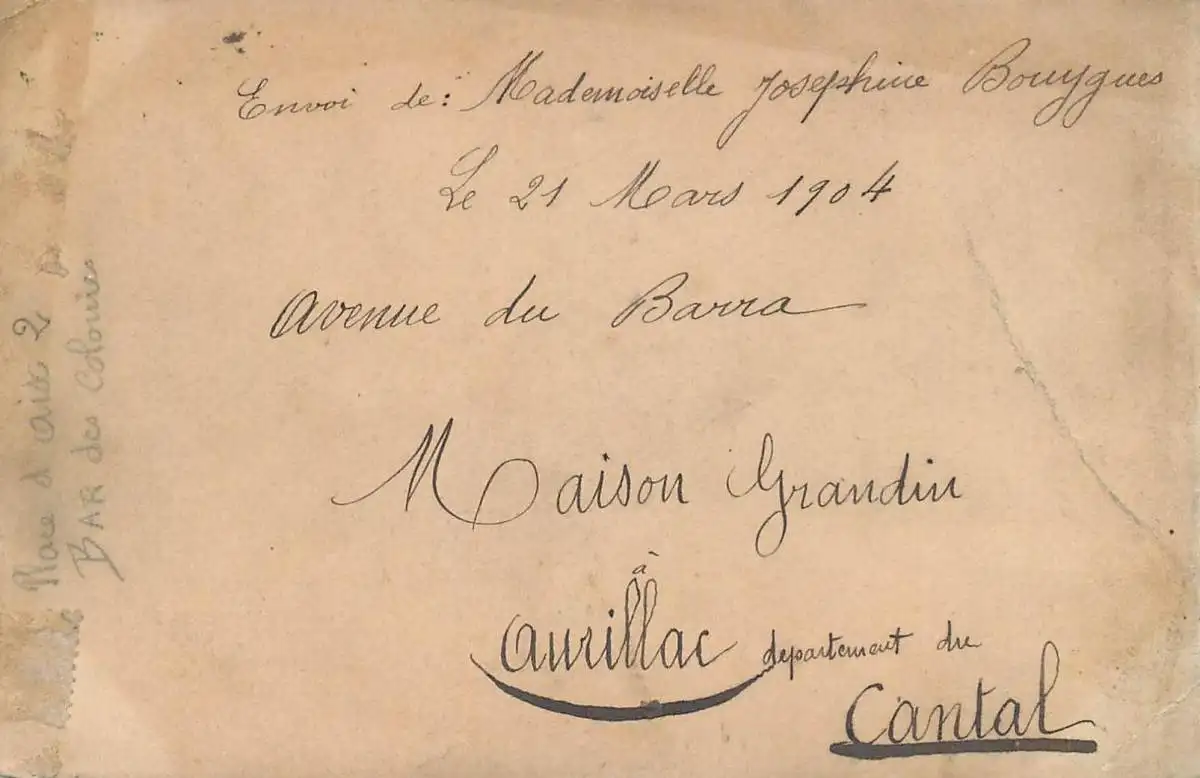 Envoi de : Mademoiselle Josephine Bouygues
Le 21 Mars 1904
Avenue du Barra
Maison Grandin
à
Aurillac departement du
Cantal
Place d aix 2
BAR des Colonies